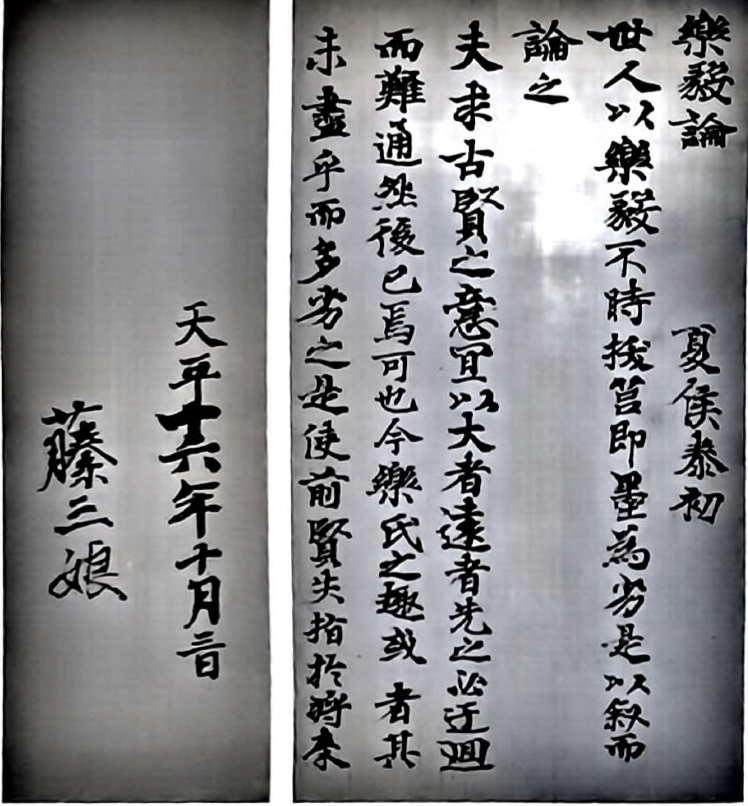 樂毅論 夏侯泰初
世人以樂毅不時拔莒即墨為劣是以叙而
論之
夫求古賢之意宜以大者遠者先之必迂迴
而難通然後已焉可也今樂氏之趣或者其
未盡乎而多劣之是使前賢失指於將来
天平十六年十月三日
藤三娘